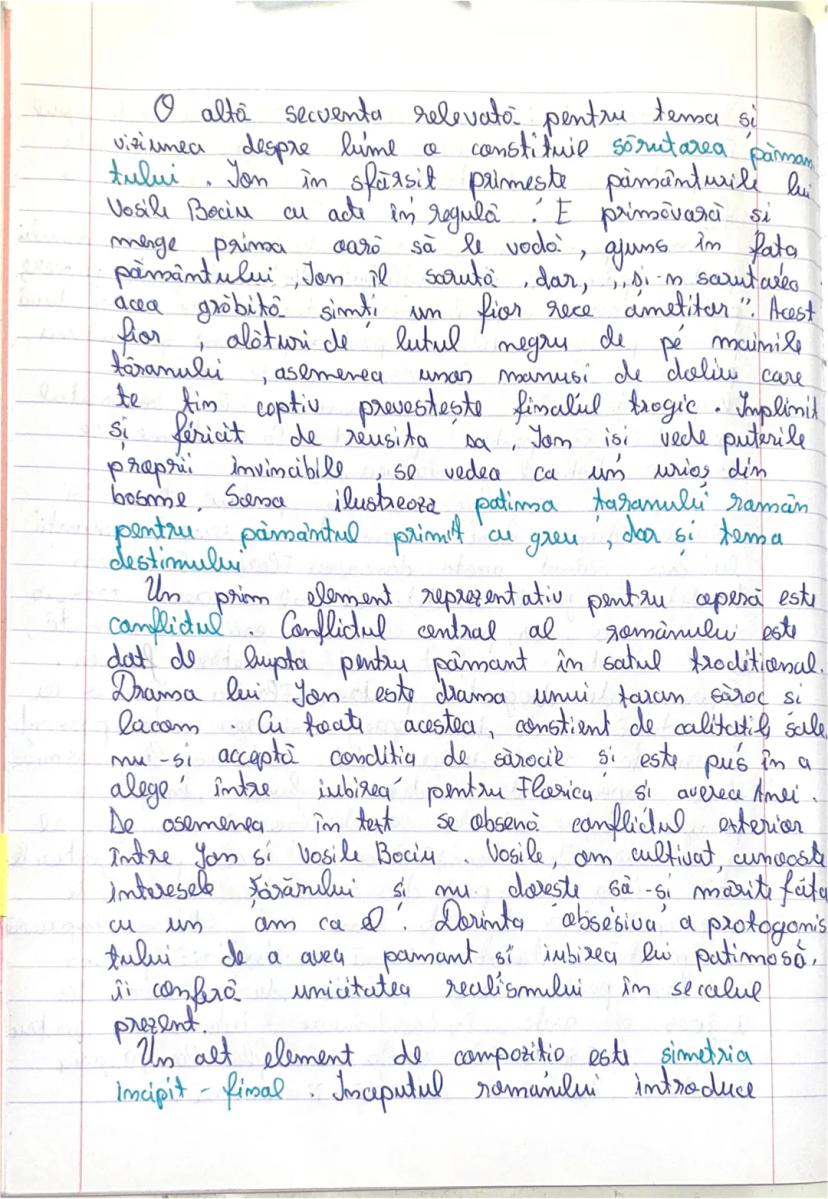 O altă secventa relevată pentru tema și
viziunea despre lume o constituie sărutarea păman
tului. Ion în sfârsit primeste pământurile lui
Vasile Baciu cu acte în regulă. E primăvară si
merge prima oară să le vadă, ajuns în fața
pământului, Ion îl sarută, dar, „și-n sarutarea
acea grăbită simti un fior rece amețitor". Acest
fior, alături de lutul negru de pe mainile
tăranului, asemenea unor manusi de doliu care
te tim captiv prevestește finalul tragic. Implinit
și fericit de reusita sa, Ion isi vede puterile
proprii invincibile, se vedea ca un urioș din
basme. Scena ilustreaza patima taranului roman
pentru pământul primit cu greu, dar și tema
destinului.
Un prim element reprezentativ pentru operă este
conflictul. Conflictul central al romanului este
dat de lupta pentru pământ în satul traditional.
Drama lui Ion este drama unui taran sărac si
lacom. Cu toate acestea, constient de calitatile sale
nu-si acceptă conditia de sărocie si este pus în a
alege între iubirea pentru Florica si averea Anei.
De asemenea în text se obsenă conflictul exterior
între Ion si Vasile Baciu. Vasile, om cultivat, cunoaste
interesele țărănului si nu doreste să-si mărite fata
cu un om ca el. Dorinta obsesivă a protagonis
tului de a avea pamant si iubirea lui patimasă,
îi conferă unicitatea realismului în secolul
prezent.
Un alt element de compozitie este simetria
incipit - final. Inceputul romanului introduce